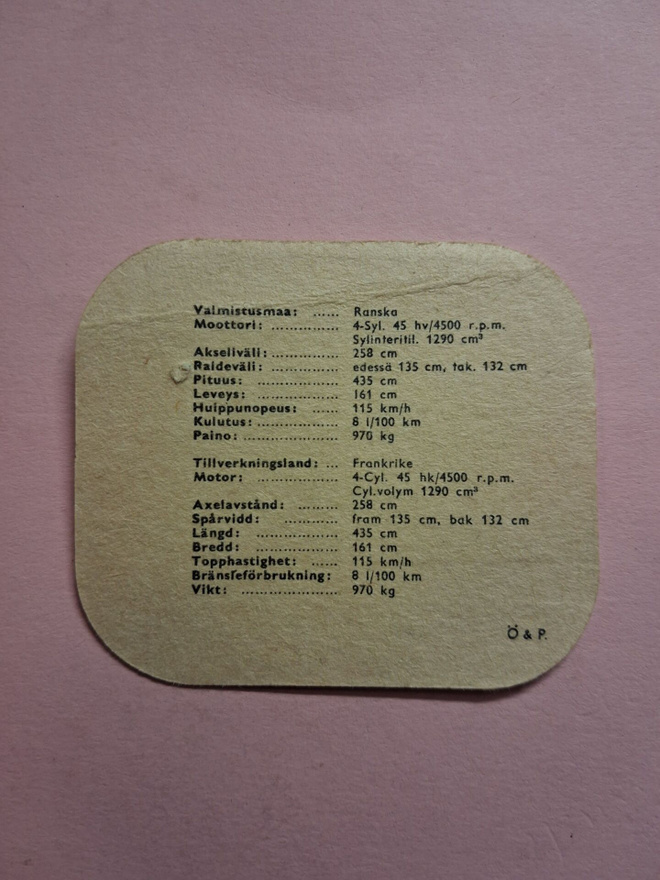 Valmistusmaa: ...... Ranska
Moottori: ................ 4-Syl. 45 hv/4500 r.p.m.
Sylinteritil. 1290 cm³
Akseliväli: ................ 258 cm
Raideväli: ................ edessä 135 cm, tak. 132 cm
Pituus: ................... 435 cm
Leveys: ................... 161 cm
Huippunopeus: ...... 115 km/h
Kulutus: ................... 8 l/100 km
Paino: ...................... 970 kg
Tillverkningsland: ... Frankrike
Motor: ................... 4-Cyl. 45 hk/4500 r.p.m.
Cyl.volym 1290 cm³
Axelavstånd: ......... 258 cm
Spårvidd: ............ fram 135 cm, bak 132 cm
Längd: ................... 435 cm
Bredd: ................... 161 cm
Topphastighet: ...... 115 km/h
Bränsleförbrukning: 8 l/100 km
Vikt: ...................... 970 kg
Ö & P.